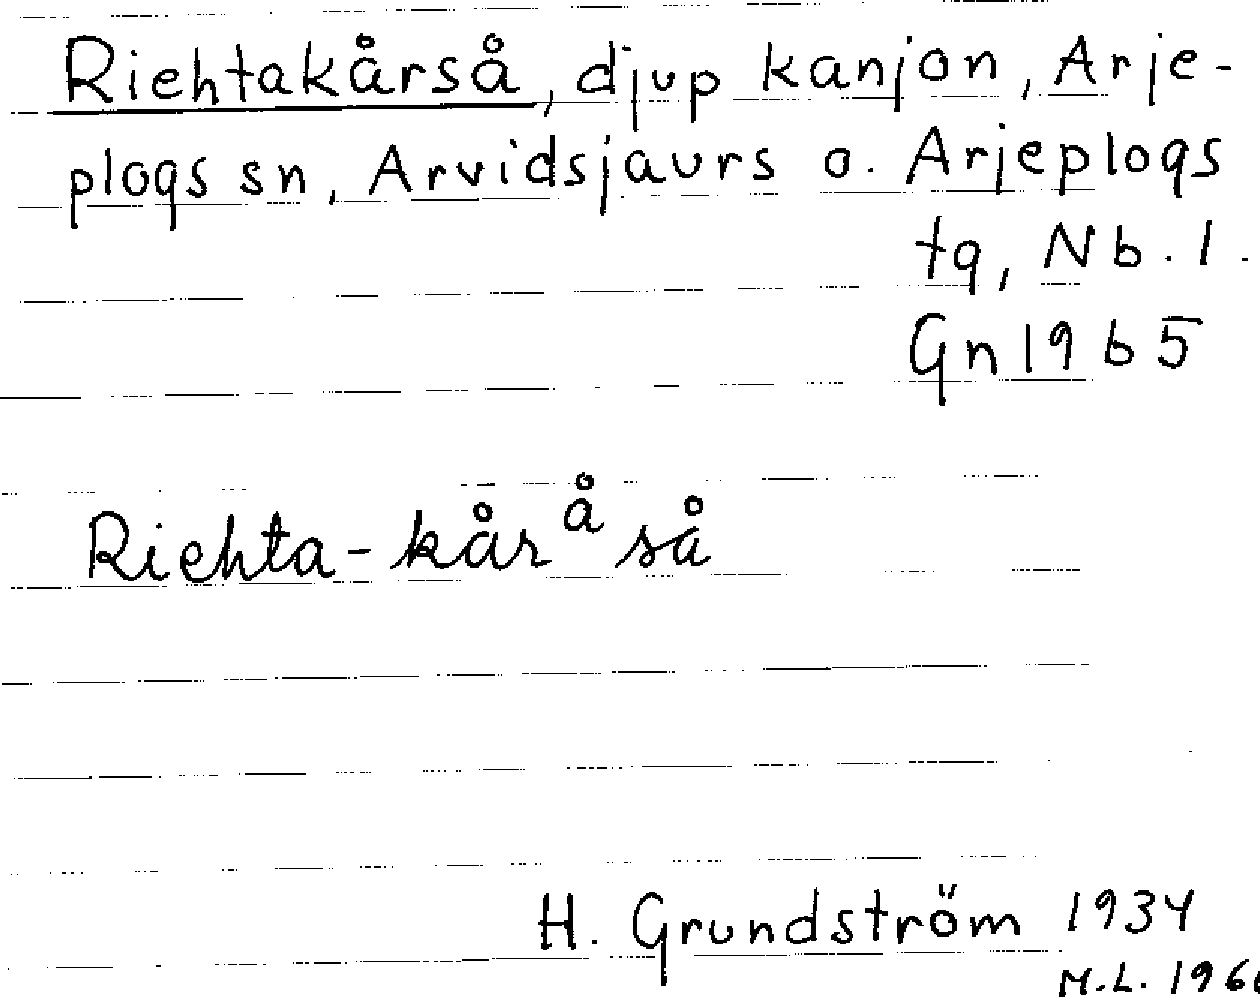 Riehtakårså, djup kanjon, Arje-
plogs sn, Arvidsjaurs o. Arjeplogs
tg, Nb. l.
Gn 1965
Riehta-kåråså
H. Grundström 1934
M.L. 196